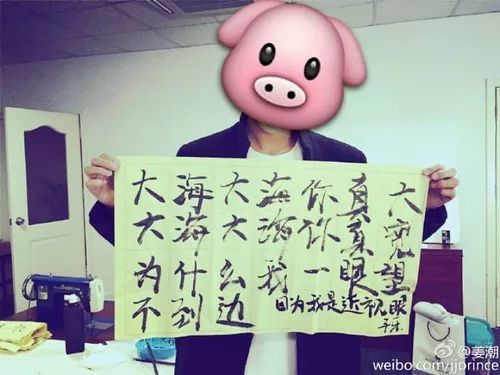 大海大海你真大
大海大海你真宽
为什么我一眼望
不到边 因为我是近视眼
@姜潮
weibo.com/jjprince